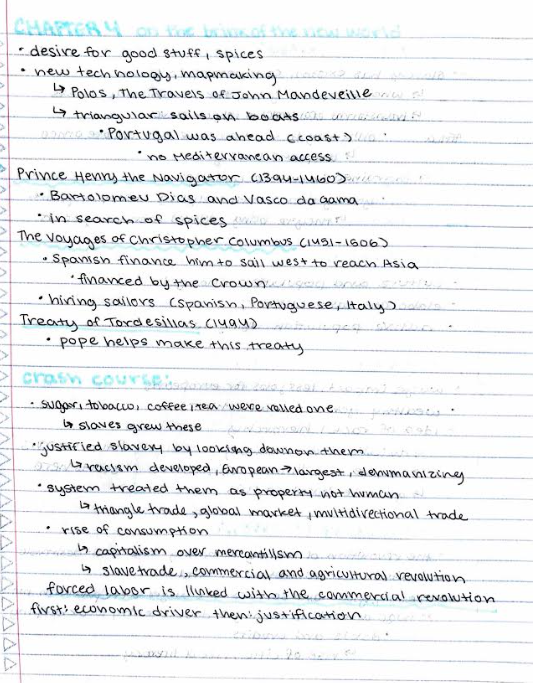 CHAPTER 4 on the brink of the new world
• desire for good stuff, spices
• new technology, mapmaking
↳ Polos, The Travels of John Mandeveille
↳ triangular sails on boats
• Portugal was ahead (coast)
• no Mediterranean access
Prince Henry the Navigator (1394-1460)
• Bartolomeu Dias and Vasco da Gama
• in search of spices
The Voyages of Christopher Columbus (1451-1506)
• Spanish finance him to sail west to reach Asia
• financed by the Crown
• hiring sailors (Spanish, Portuguese, Italy)
Treaty of Tordesillas (1494)
• pope helps make this treaty
crash course:
• sugar, tobacco, coffee, tea were valued one
↳ slaves grew these
• justified slavery by looking down on them
↳ racism developed, European → largest, dehumanizing
• system treated them as property not human
↳ triangle trade, global market, multidirectional trade
• rise of consumption
↳ capitalism over mercantilism
↳ slave trade, commercial and agricultural revolution
forced labor is linked with the commercial revolution
first: economic driver then: justification